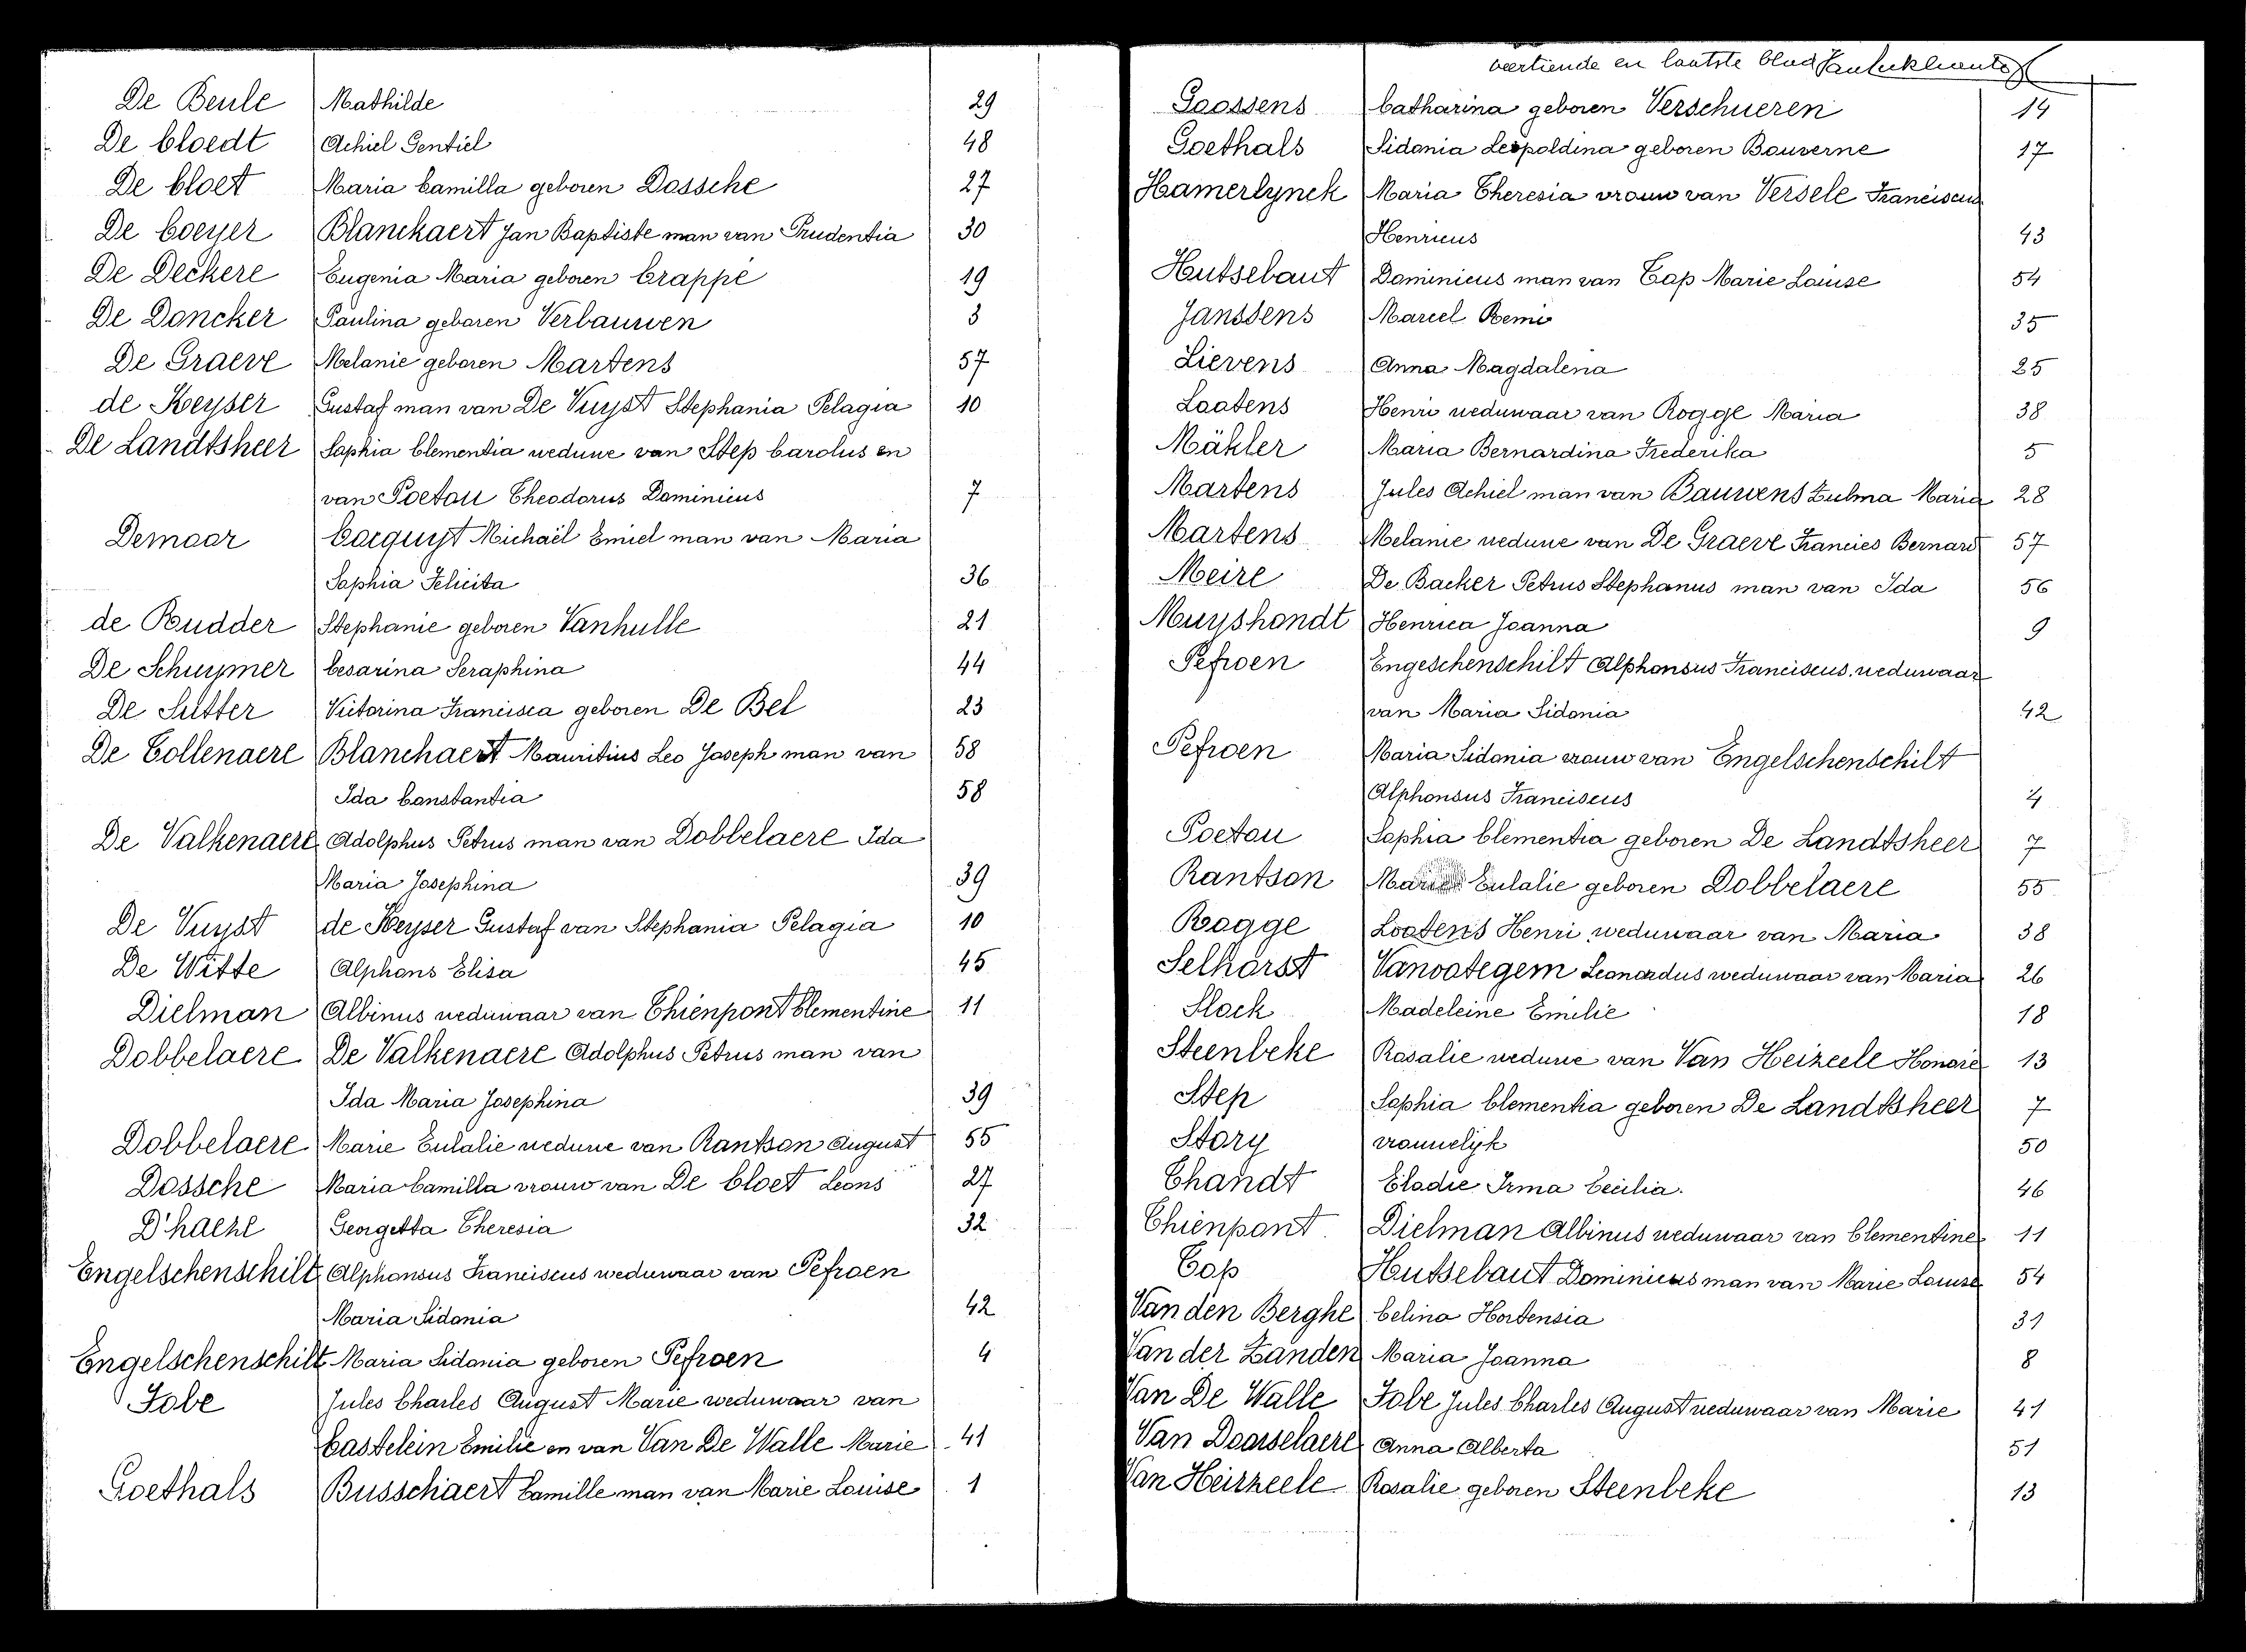 De Beule Mathilde 29
De Cloedt Achiel Gentiel 48
De Cloet Maria Camilla geboren Dossche 27
De Coeyer Blanckaert Jan Baptiste man van Prudentia 30
De Deckere Eugenia Maria geboren Crappé 19
De Doncker Paulina geboren Verbauwen 3
De Graeve Melanie geboren Martens 57
de Keyser Gustaf man van De Vuyst Stephania Pelagia 10
De Landtsheer Sophia Clementia weduwe van Step Carolus en
van Poetou Theodorus Dominicus 7
Demaar Cocquyt Michaël Emiel man van Maria
Sophia Felicita 36
de Rudder Stephanie geboren Vanhulle 21
De Schuymer Cesarina Seraphina 44
De Sutter Victorina Francisca geboren De Bel 23
De Tollenaere Blanchaert Mauritius Leo Joseph man van 58
Ida Constantia 58
De Valkenaere Adolphus Petrus man van Dobbelaere Ida
Maria Josephina 39
De Vuyst de Keyser Gustaf van Stephania Pelagia 10
De Witte Alphons Elisa 45
Dielman Albinus weduwaar van Thienpont Clementine 11
Dobbelaere De Valkenaere Adolphus Petrus man van
Ida Maria Josephina 39
Dobbelaere Marie Eulalie weduwe van Rantson August 55
Dossche Maria Camilla vrouw van De Cloet Leons 27
D'haene Georgetta Theresia 32
Engelschenschilt Alphonsus Franciscus weduwaar van Pefroen
Maria Sidonia 42
Engelschenschilt Maria Sidonia geboren Pefroen 4
Fobe Jules Charles August Marie weduwaar van
Castelein Emilie en van Van De Walle Marie 41
Goethals Busschaert Camille man van Marie Louise 1
veertiende en laatste blad
Goossens Catharina geboren Verschueren 14
Goethals Sidonia Leopoldina geboren Bouverne 17
Hamerlynck Maria Theresia vrouw van Versele Franciscus
Henricus 43
Hutsebaut Dominicus man van Tap Marie Louise 54
Janssens Marcel Remi 35
Lievens Anna Magdalena 25
Lootens Henri weduwaar van Rogge Maria 38
Mähler Maria Bernardina Frederika 5
Martens Jules Achiel man van Bauwens Zulma Maria 28
Martens Melanie weduwe van De Graeve Francies Bernard 57
Meire De Backer Petrus Stephanus man van Ida 56
Muyshondt Henrica Joanna 9
Pefroen Engeschenschilt Alphonsus Franciscus weduwaar
van Maria Sidonia 42
Pefroen Maria Sidonia vrouw van Engelschenschilt
Alphonsus Franciscus 4
Poetou Sophia Clementia geboren De Landtsheer 7
Rantson Marie Eulalie geboren Dobbelaere 55
Rogge Lootens Henri weduwaar van Maria 38
Selhorst Vanootegem Leonardus weduwaar van Maria 26
Slock Madeleine Emilie 18
Steenbeke Rosalie weduwe van Van Heizeele Honoré 13
Step Sophia Clementia geboren De Landtsheer 7
Story vrouwelijk 50
Thandt Elodie Irma Cecilia. 46
Thienpont Dielman Albinus weduwaar van Clementine 11
Tap Hutsebaut Dominicus man van Marie Louise 54
Van den Berghe Celina Hortensia 31
Van der Zanden Maria Joanna 8
Van De Walle Fobe Jules Charles August weduwaar van Marie 41
Van Doorselaere Anna Alberta 51
Van Heirzeele Rosalie geboren Steenbeke 13